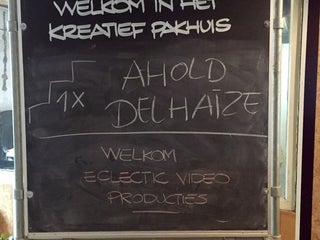 WELKOM IN HET
KREATIEF PAKHUIS
1X AHOLD
DELHAÏZE
WELKOM
ECLECTIC VIDEO
PRODUCTIES